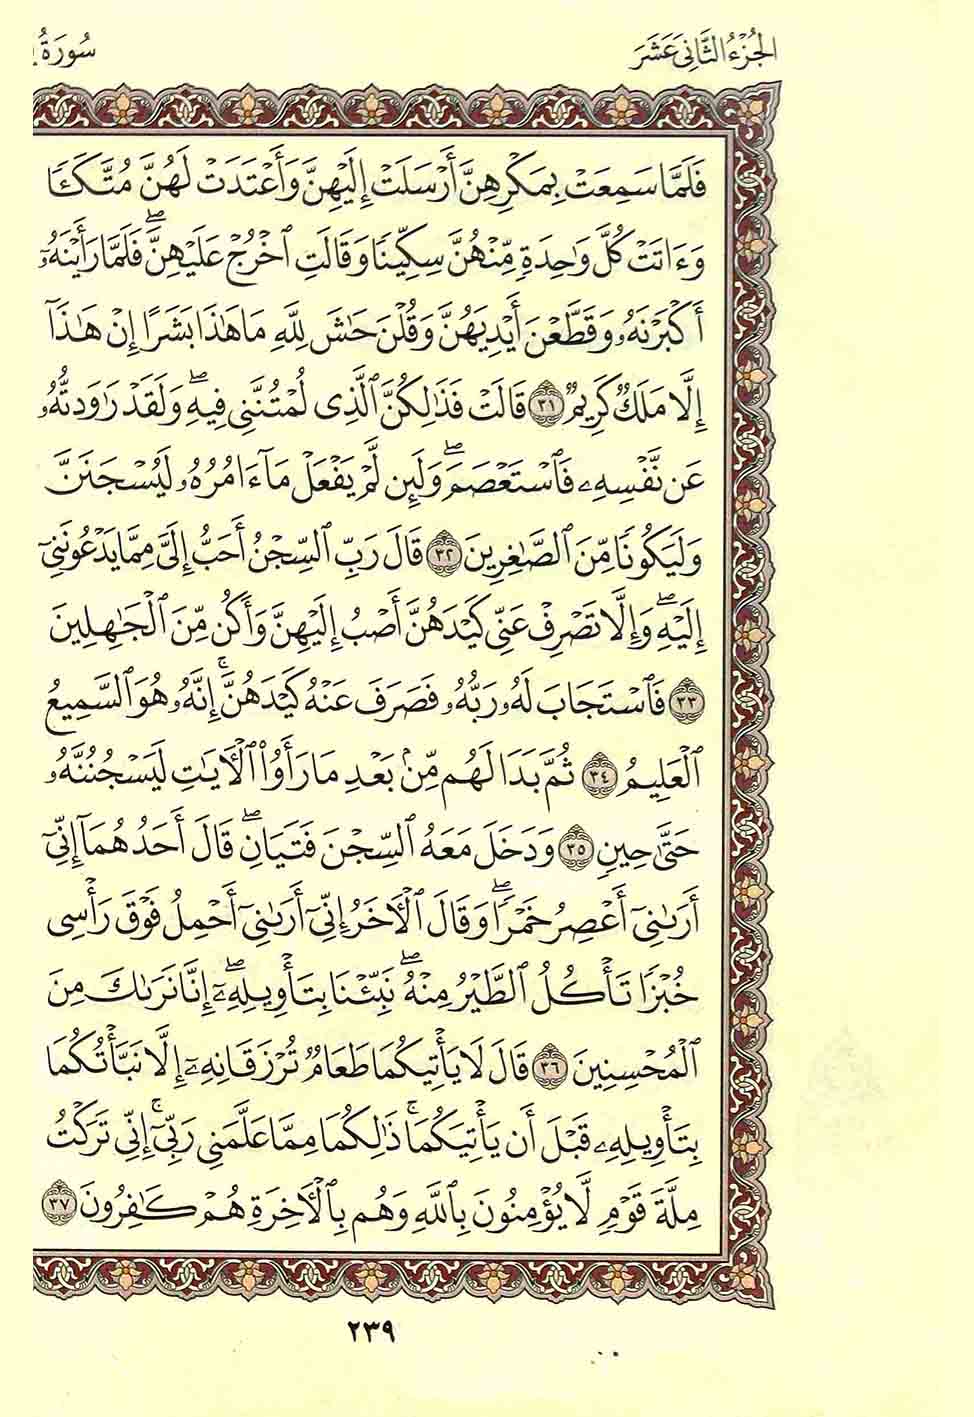 الجُزْءُ الثَّانِي عَشَرَ
سُورَةُ
فَلَمَّا سَمِعَتْ بِمَكْرِهِنَّ أَرْسَلَتْ إِلَيْهِنَّ وَأَعْتَدَتْ لَهُنَّ مُتَّكَـًٔا
وَءَاتَتْ كُلَّ وَٰحِدَةٍ مِّنْهُنَّ سِكِّينًا وَقَالَتِ ٱخْرُجْ عَلَيْهِنَّۖ فَلَمَّا رَأَيْنَهُۥٓ
أَكْبَرْنَهُۥ وَقَطَّعْنَ أَيْدِيَهُنَّ وَقُلْنَ حَٰشَ لِلَّهِ مَا هَٰذَا بَشَرًا إِنْ هَٰذَآ
إِلَّا مَلَكٌ كَرِيمٌ ٣١ قَالَتْ فَذَٰلِكُنَّ ٱلَّذِى لُمْتُنَّنِى فِيهِۖ وَلَقَدْ رَٰوَدتُّهُۥ
عَن نَّفْسِهِۦ فَٱسْتَعْصَمَۖ وَلَئِن لَّمْ يَفْعَلْ مَآ ءَامُرُهُۥ لَيُسْجَنَنَّ
وَلَيَكُونًا مِّنَ ٱلصَّٰغِرِينَ ٣٢ قَالَ رَبِّ ٱلسِّجْنُ أَحَبُّ إِلَىَّ مِمَّا يَدْعُونَنِىٓ
إِلَيْهِۖ وَإِلَّا تَصْرِفْ عَنِّى كَيْدَهُنَّ أَصْبُ إِلَيْهِنَّ وَأَكُن مِّنَ ٱلْجَٰهِلِينَ
٣٣ فَٱسْتَجَابَ لَهُۥ رَبُّهُۥ فَصَرَفَ عَنْهُ كَيْدَهُنَّۚ إِنَّهُۥ هُوَ ٱلسَّمِيعُ
ٱلْعَلِيمُ ٣٤ ثُمَّ بَدَا لَهُم مِّنۢ بَعْدِ مَا رَأَوُا۟ ٱلْءَايَٰتِ لَيَسْجُنُنَّهُۥ
حَتَّىٰ حِينٍ ٣٥ وَدَخَلَ مَعَهُ ٱلسِّجْنَ فَتَيَانِۖ قَالَ أَحَدُهُمَآ إِنِّىٓ
أَرَىٰنِىٓ أَعْصِرُ خَمْرًاۖ وَقَالَ ٱلْءَاخَرُ إِنِّىٓ أَرَىٰنِىٓ أَحْمِلُ فَوْقَ رَأْسِى
خُبْزًا تَأْكُلُ ٱلطَّيْرُ مِنْهُۖ نَبِّئْنَا بِتَأْوِيلِهِۦٓۖ إِنَّا نَرَىٰكَ مِنَ
ٱلْمُحْسِنِينَ ٣٦ قَالَ لَا يَأْتِيكُمَا طَعَامٌ تُرْزَقَانِهِۦٓ إِلَّا نَبَّأْتُكُمَا
بِتَأْوِيلِهِۦ قَبْلَ أَن يَأْتِيَكُمَاۚ ذَٰلِكُمَا مِمَّا عَلَّمَنِى رَبِّىٓۚ إِنِّى تَرَكْتُ
مِلَّةَ قَوْمٍ لَّا يُؤْمِنُونَ بِٱللَّهِ وَهُم بِٱلْءَاخِرَةِ هُمْ كَٰفِرُونَ ٣٧
٢٣٩